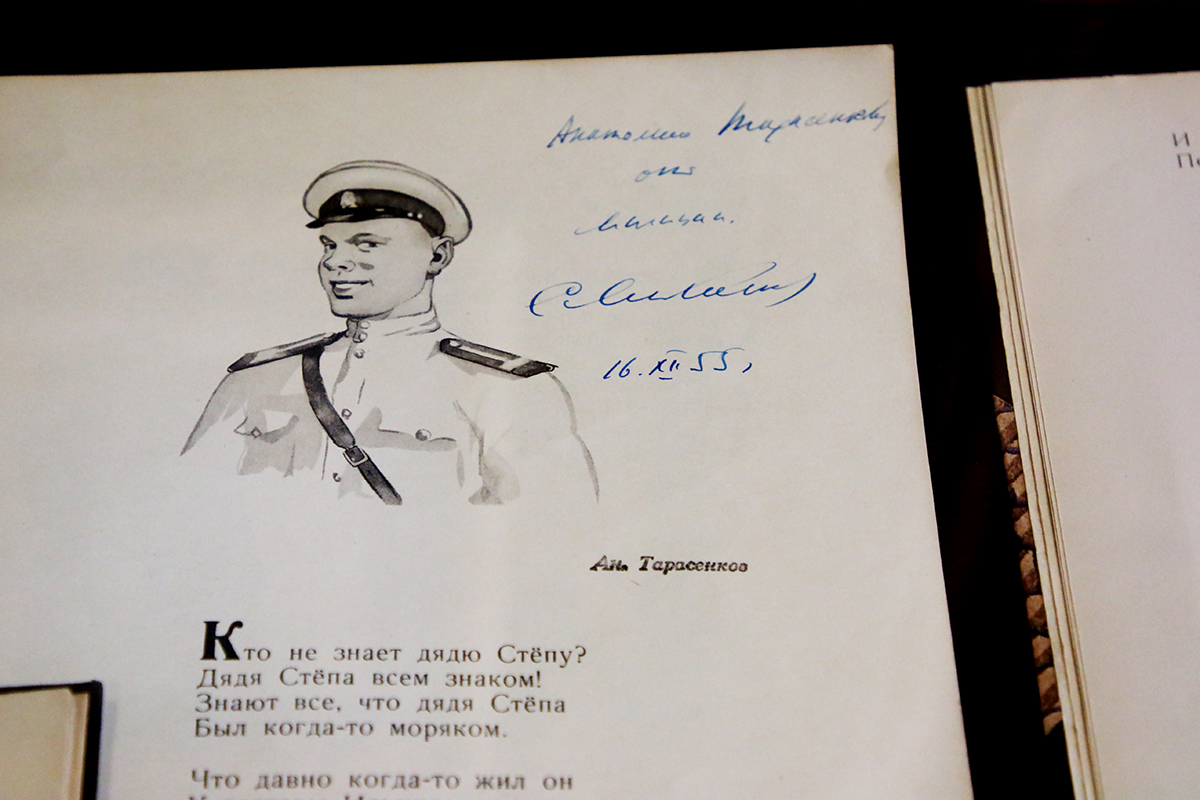 Анатолию Тарасенкову
от
милиции.
С. Михалков
16.XII 55,
Ан. Тарасенков
Кто не знает дядю Стёпу?
Дядя Стёпа всем знаком!
Знают все, что дядя Стёпа
Был когда-то моряком.
Что давно когда-то жил он
И